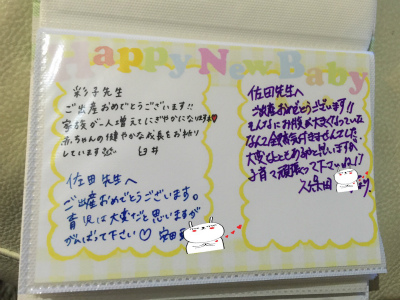 Happy New Baby
彩子先生
ご出産おめでとうございます!!
家族が一人増えてにぎやかになりますね
赤ちゃんの健やかな成長をお祈り
しています 臼井
佐田先生へ
ご出産おめでとうございます。
育児は大変だと思いますが
がんばって下さい♡ 安田
佐田先生へ
ご出産おめでとうございます!!
そんなにお腹が大きくなっていた
なんて全然気付きませんでした。
大変なこともあると思いますが
子育て頑張って下さいね!!
久保田